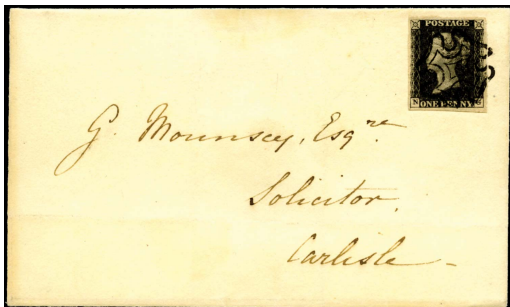 POSTAGE
ONE PENNY
G. Mounsey, Esqre.
Solicitor.
Carlisle